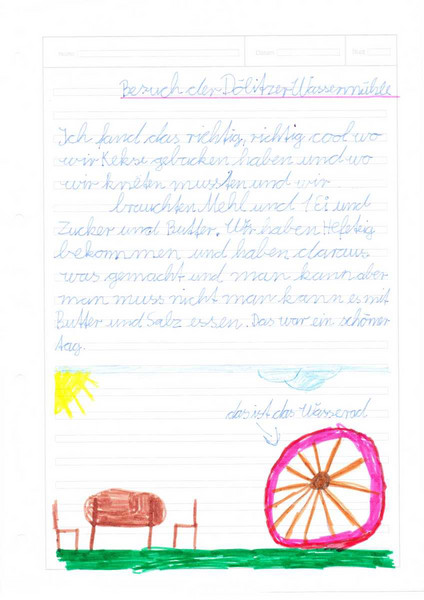 Besuch der Dölitzer Wassermühle
Ich fand das richtig, richtig cool wo
wir Kekse gebacken haben und wo
wir kneten mussten und wir
brauchten Mehl und 1 Ei und
Zucker und Butter. Wir haben Hefeteig
bekommen und haben daraus
was gemacht und man kann aber
man muss nicht man kann es mit
Butter und Salz essen. Das war ein schöner
Tag.
das ist das Wasserrad